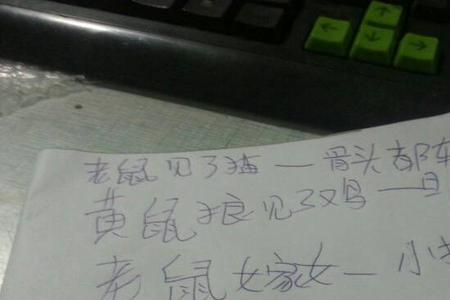 老鼠见了猫一骨头都
黄鼠狼见了鸡一
老鼠嫁女一小